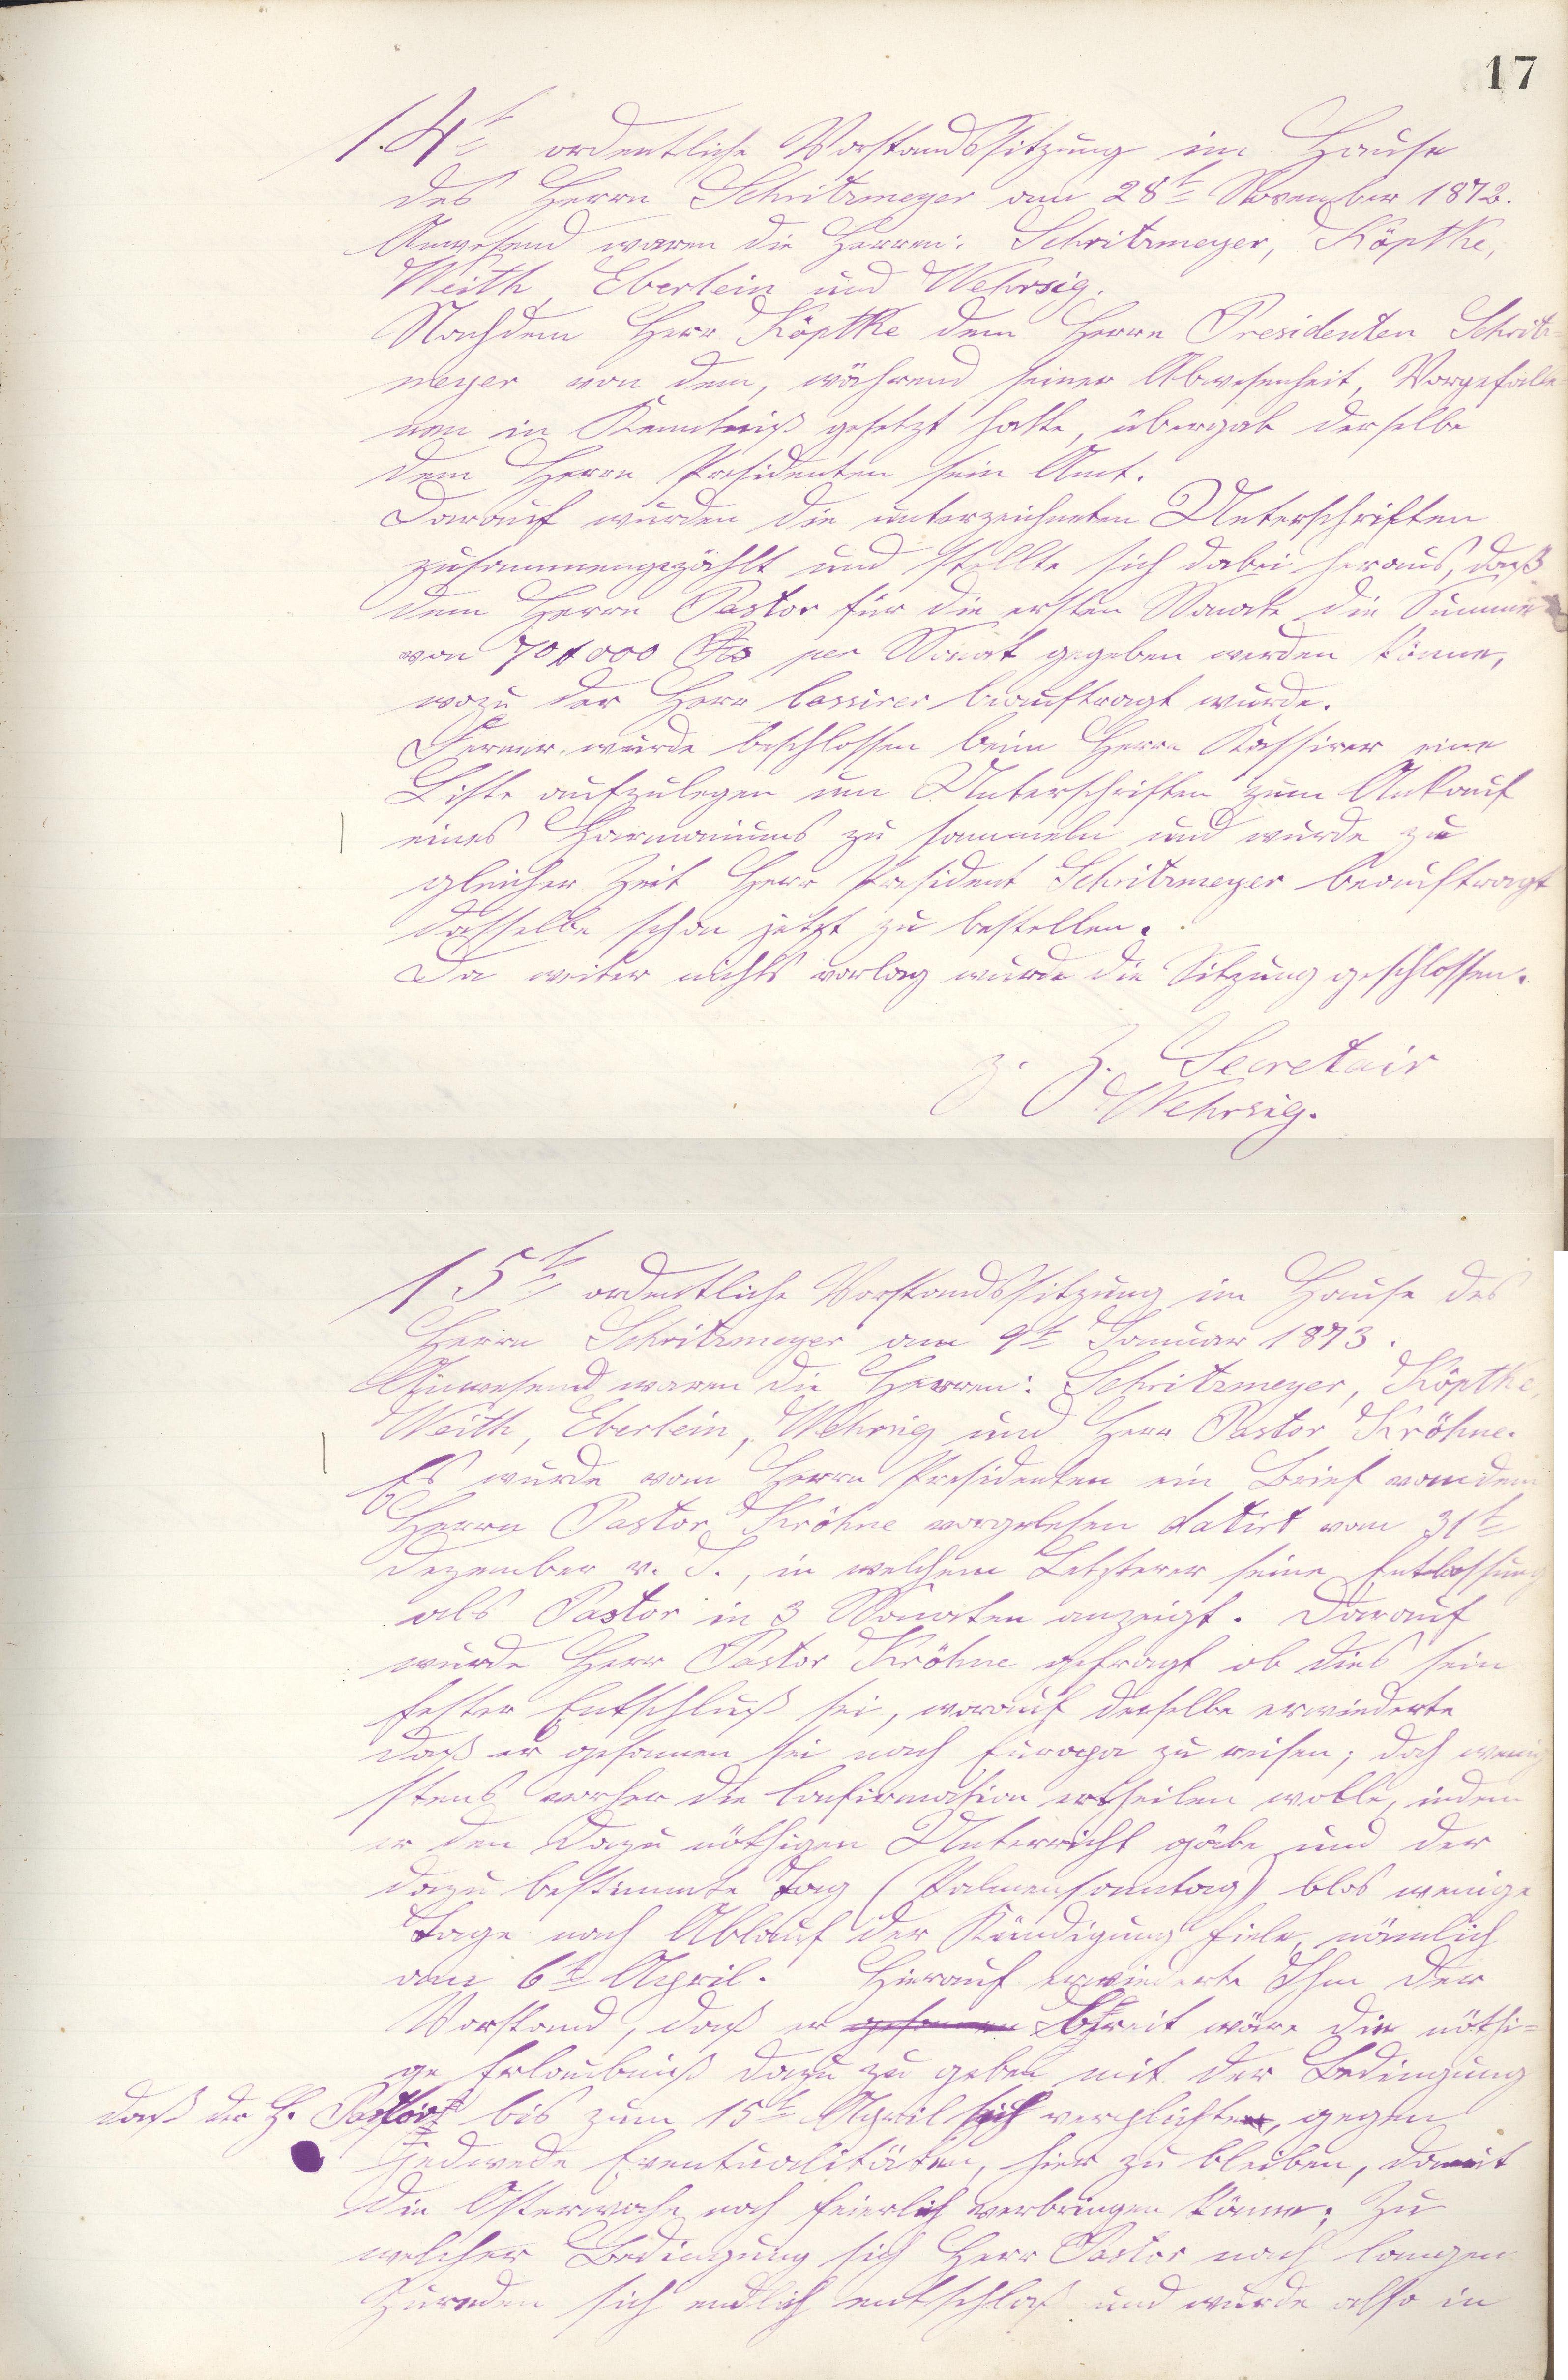 17
14t ordentliche Vorstandssitzung im Hause
des Herrn Schritzmeyer am 28t November 1872.
Anwesend waren die Herren: Schritzmeyer, Köptke,
Weith, Eberlein und Wehrsig.
Nachdem Herr Köptke dem Herrn Presidenten Schritz-
meyer von dem, während seiner Abwesenheit, Vorgefalle-
nen in Kenntniß gesetzt hatte, übergab derselbe
dem Herrn Presidenten sein Amt.
Darauf wurden die unterzeichneten Unterschriften
zusammengezählt und stellte sich dabei heraus, daß
dem Herrn Pastor für die ersten Monate die Summe
von 70$000 Rs per Monat gegeben werden könne,
wozu der Herr Cassirer beauftragt wurde.
Ferner wurde beschlossen beim Herrn Kassirer eine
Liste aufzulegen um Unterschriften zum Ankauf
eines Harmoniums zu sammeln und wurde zu
gleicher Zeit Herr President Schritzmeyer beauftragt
dasselbe schon jetzt zu bestellen.
Da weiter nichts vorlag wurde die Sitzung geschlossen.
z. Z. Secretair
Wehrsig.
15te ordentliche Vorstandssitzung im Hause des
Herrn Schritzmeyer am 9t Januar 1873.
Anwesend waren die Herren: Schritzmeyer, Köptke,
Weith, Eberlein, Wehrsig und Herr Pastor Kröhne.
Es wurde vom Herrn Presidenten ein Brief von dem
Herrn Pastor Kröhne vorgelesen datirt vom 31t
Dezember v. J., in welchem Letzterer seine Entlassung
als Pastor in 3 Monaten anzeigt. Darauf
wurde Herr Pastor Kröhne gefragt ob dies sein
fester Entschluß sei, worauf derselbe erwiederte
daß er gesonnen sei nach Europa zu reisen; doch wenig
stens vorher die Confirmation ertheilen wolle, indem
er den dazu nöthigen Unterricht gäbe und der
dazu bestimmte Tag (Palmensonntag) blos wenige
Tage nach Ablauf der Kündigung fiele, nämlich
am 6t April. Hierauf erwiederte Ihm der
Vorstand, daß er gesonnen bereit wäre die nöthi=
ge Erlaubniß dazu zu geben mit der Bedingung
daß der H. Pastor bis zum 15t April sich verplichte, gegen
jedwede Eventualitäten, hier zu bleiben, damit
die Osterwoche noch feierlich verbringen könne; Zu
welcher Bedingung sich Herr Pastor nach langen
Zureden sich endlich entschloß und wurde also in